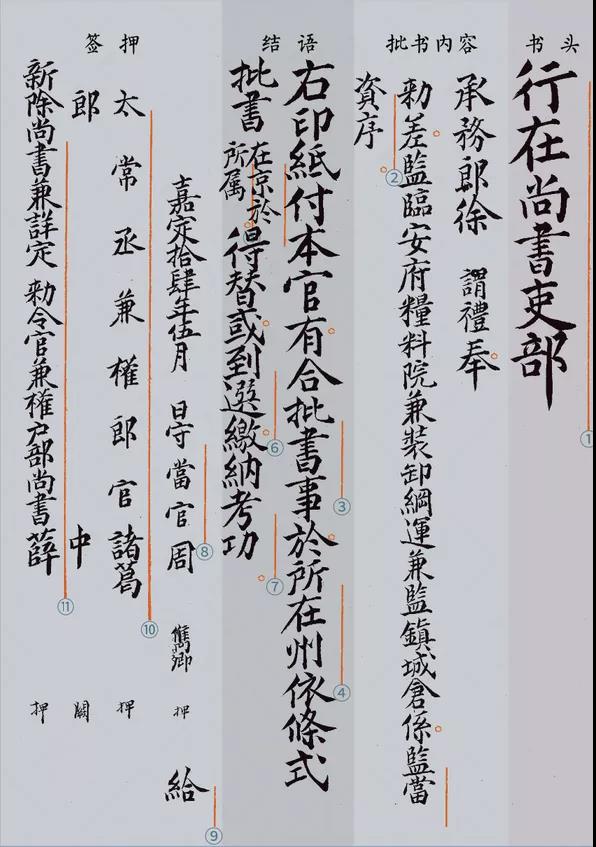 书头
批书内容
结语
签押
行在尚書吏部
承務郎徐 謂禮奉
勑差監臨安府糧料院兼裝卸綱運兼監鎮城倉係監當
資序
右印紙付本官有合批書事於所在州依條式
批書 在京於所属 得替或到選繳納考功
嘉定拾肆年伍月 日守當官周 儁卿 押 給
太常丞兼權郎官諸葛 押
郎 中 闕
新除尚書兼詳定 勑令官兼權户部尚書薛 押
①
②
③
④
⑥
⑦
⑧
⑨
⑩
⑪